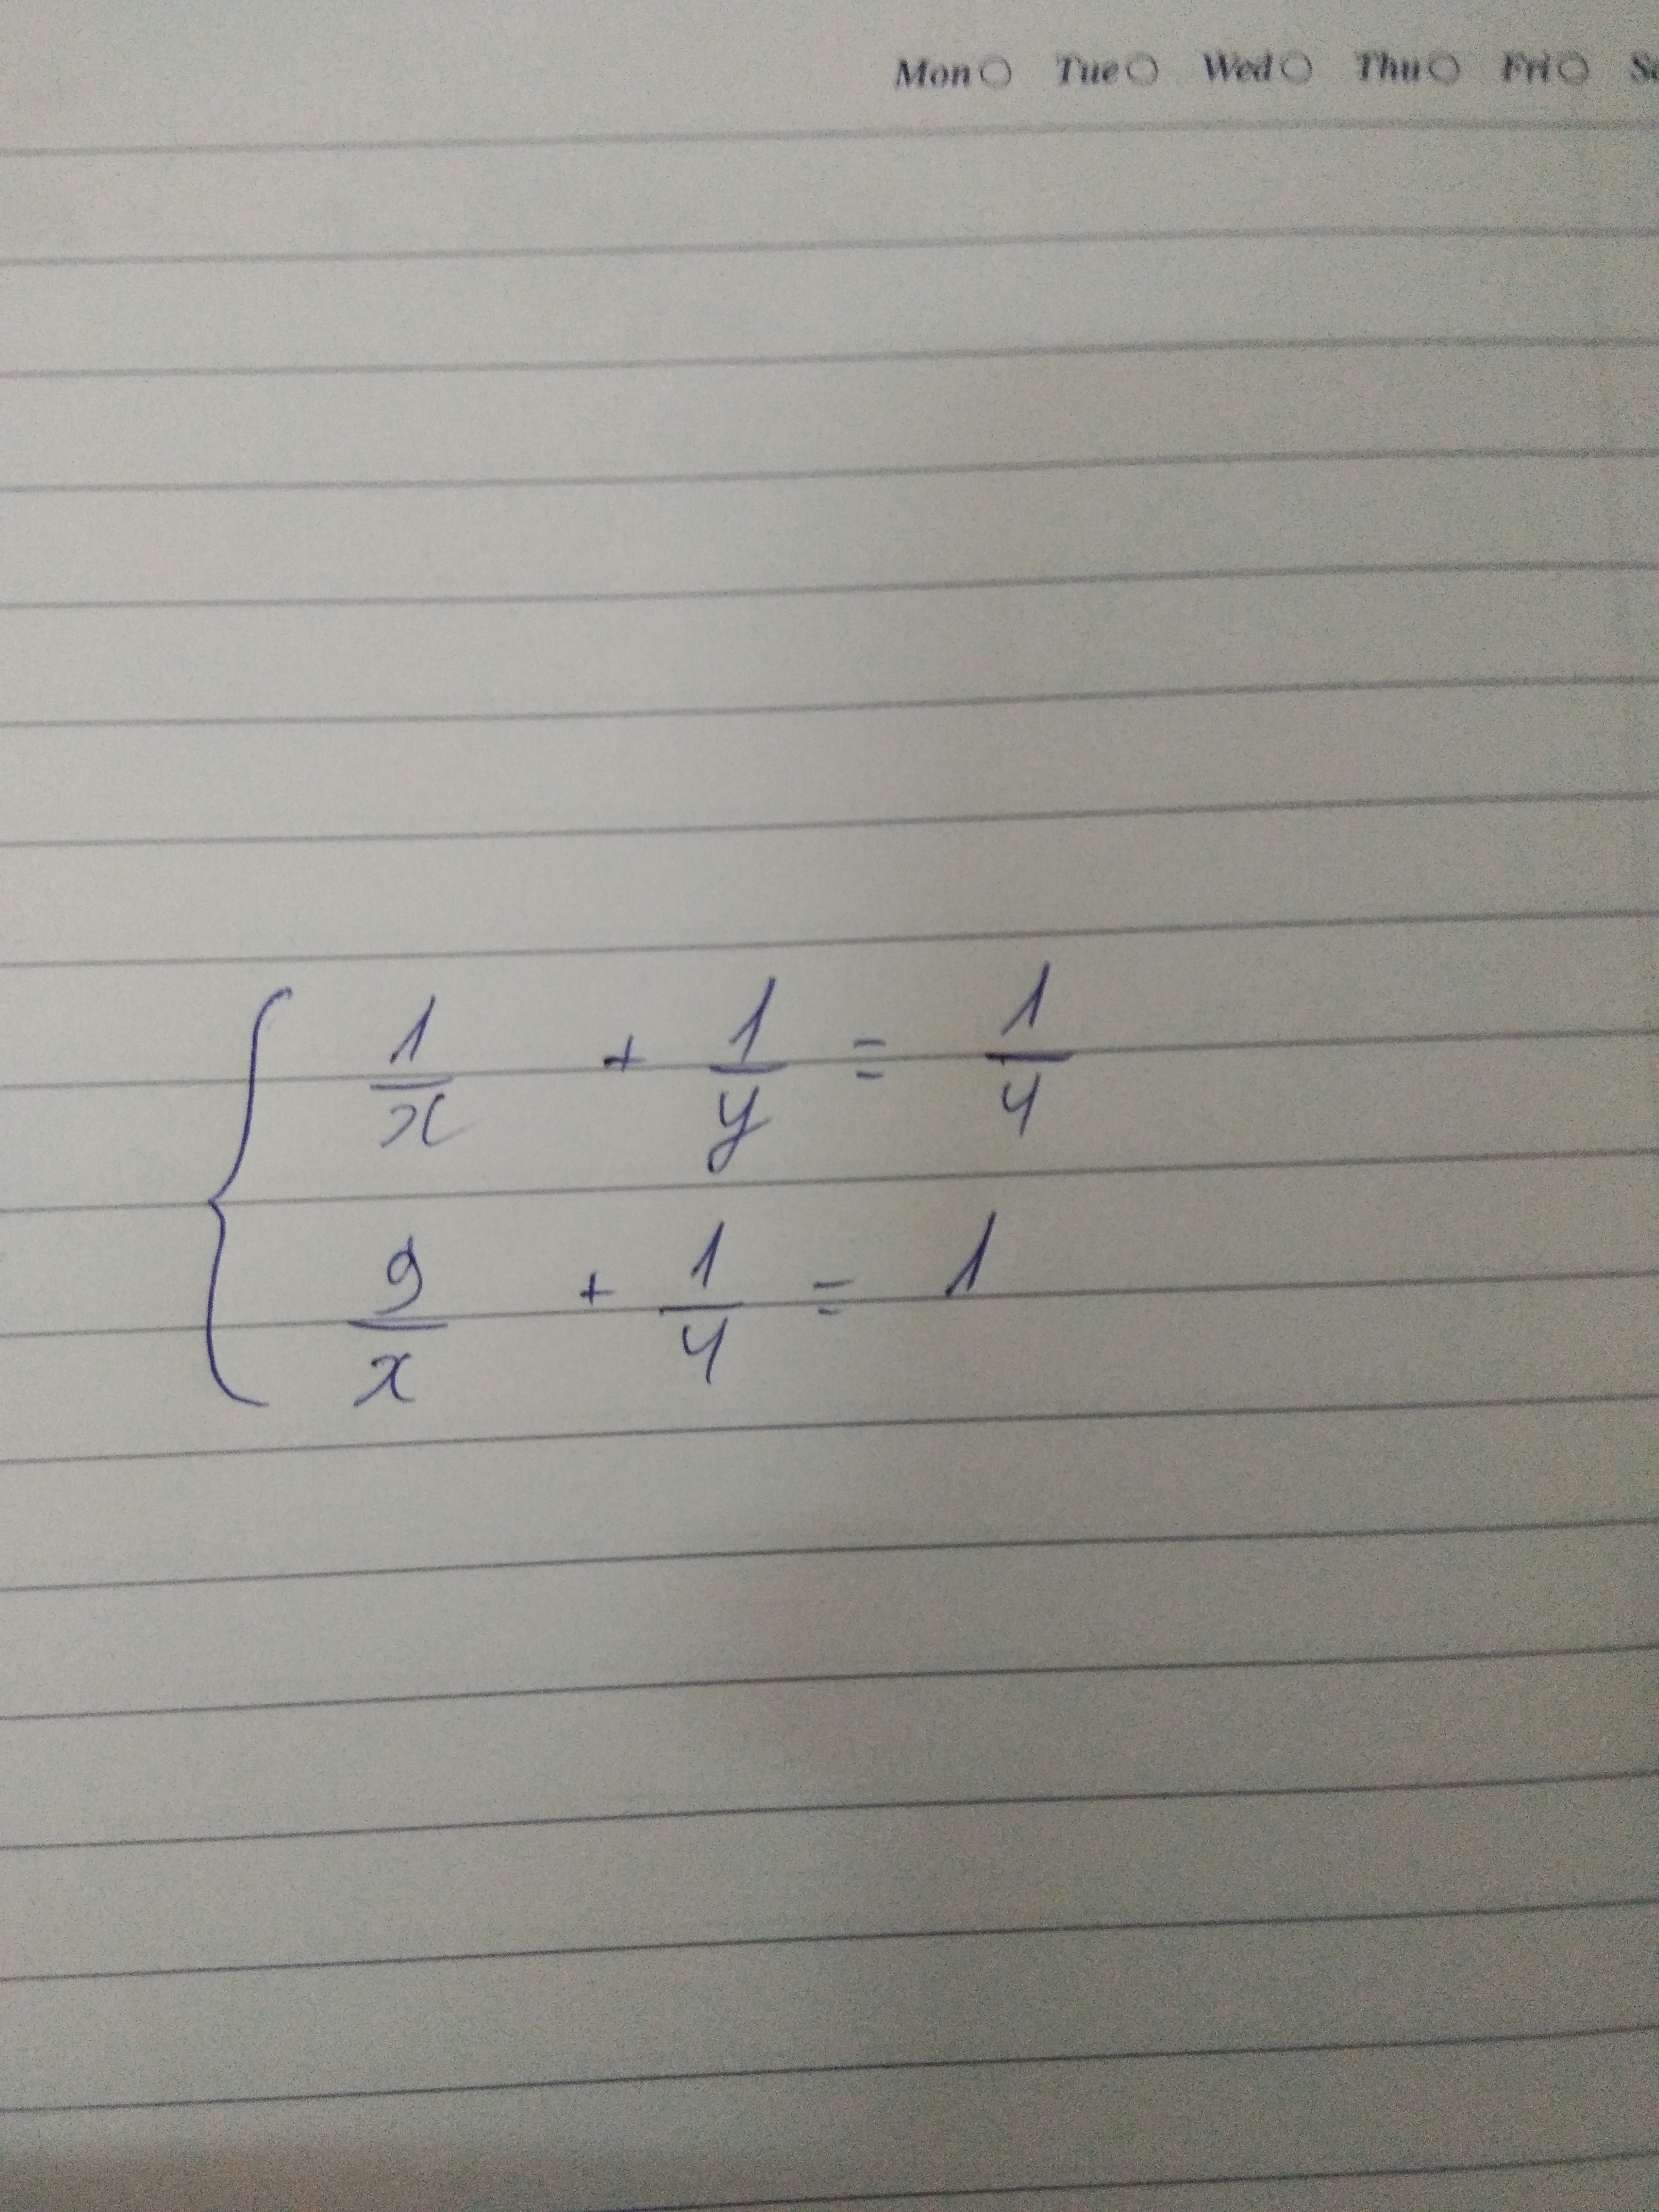 Mon Tue Wed Thu Fri
{ 1/x + 1/y = 1/4
9/x + 1/4 = 1